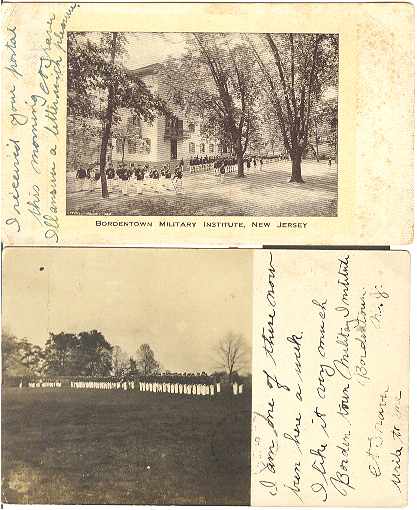 I received your postal
this morning
answer a letter with pleasure
BORDENTOWN MILITARY INSTITUTE, NEW JERSEY
I am one of these now
been here a week.
I like it very much
Borden town Military Institute
Bordentown
N. J.
write to me